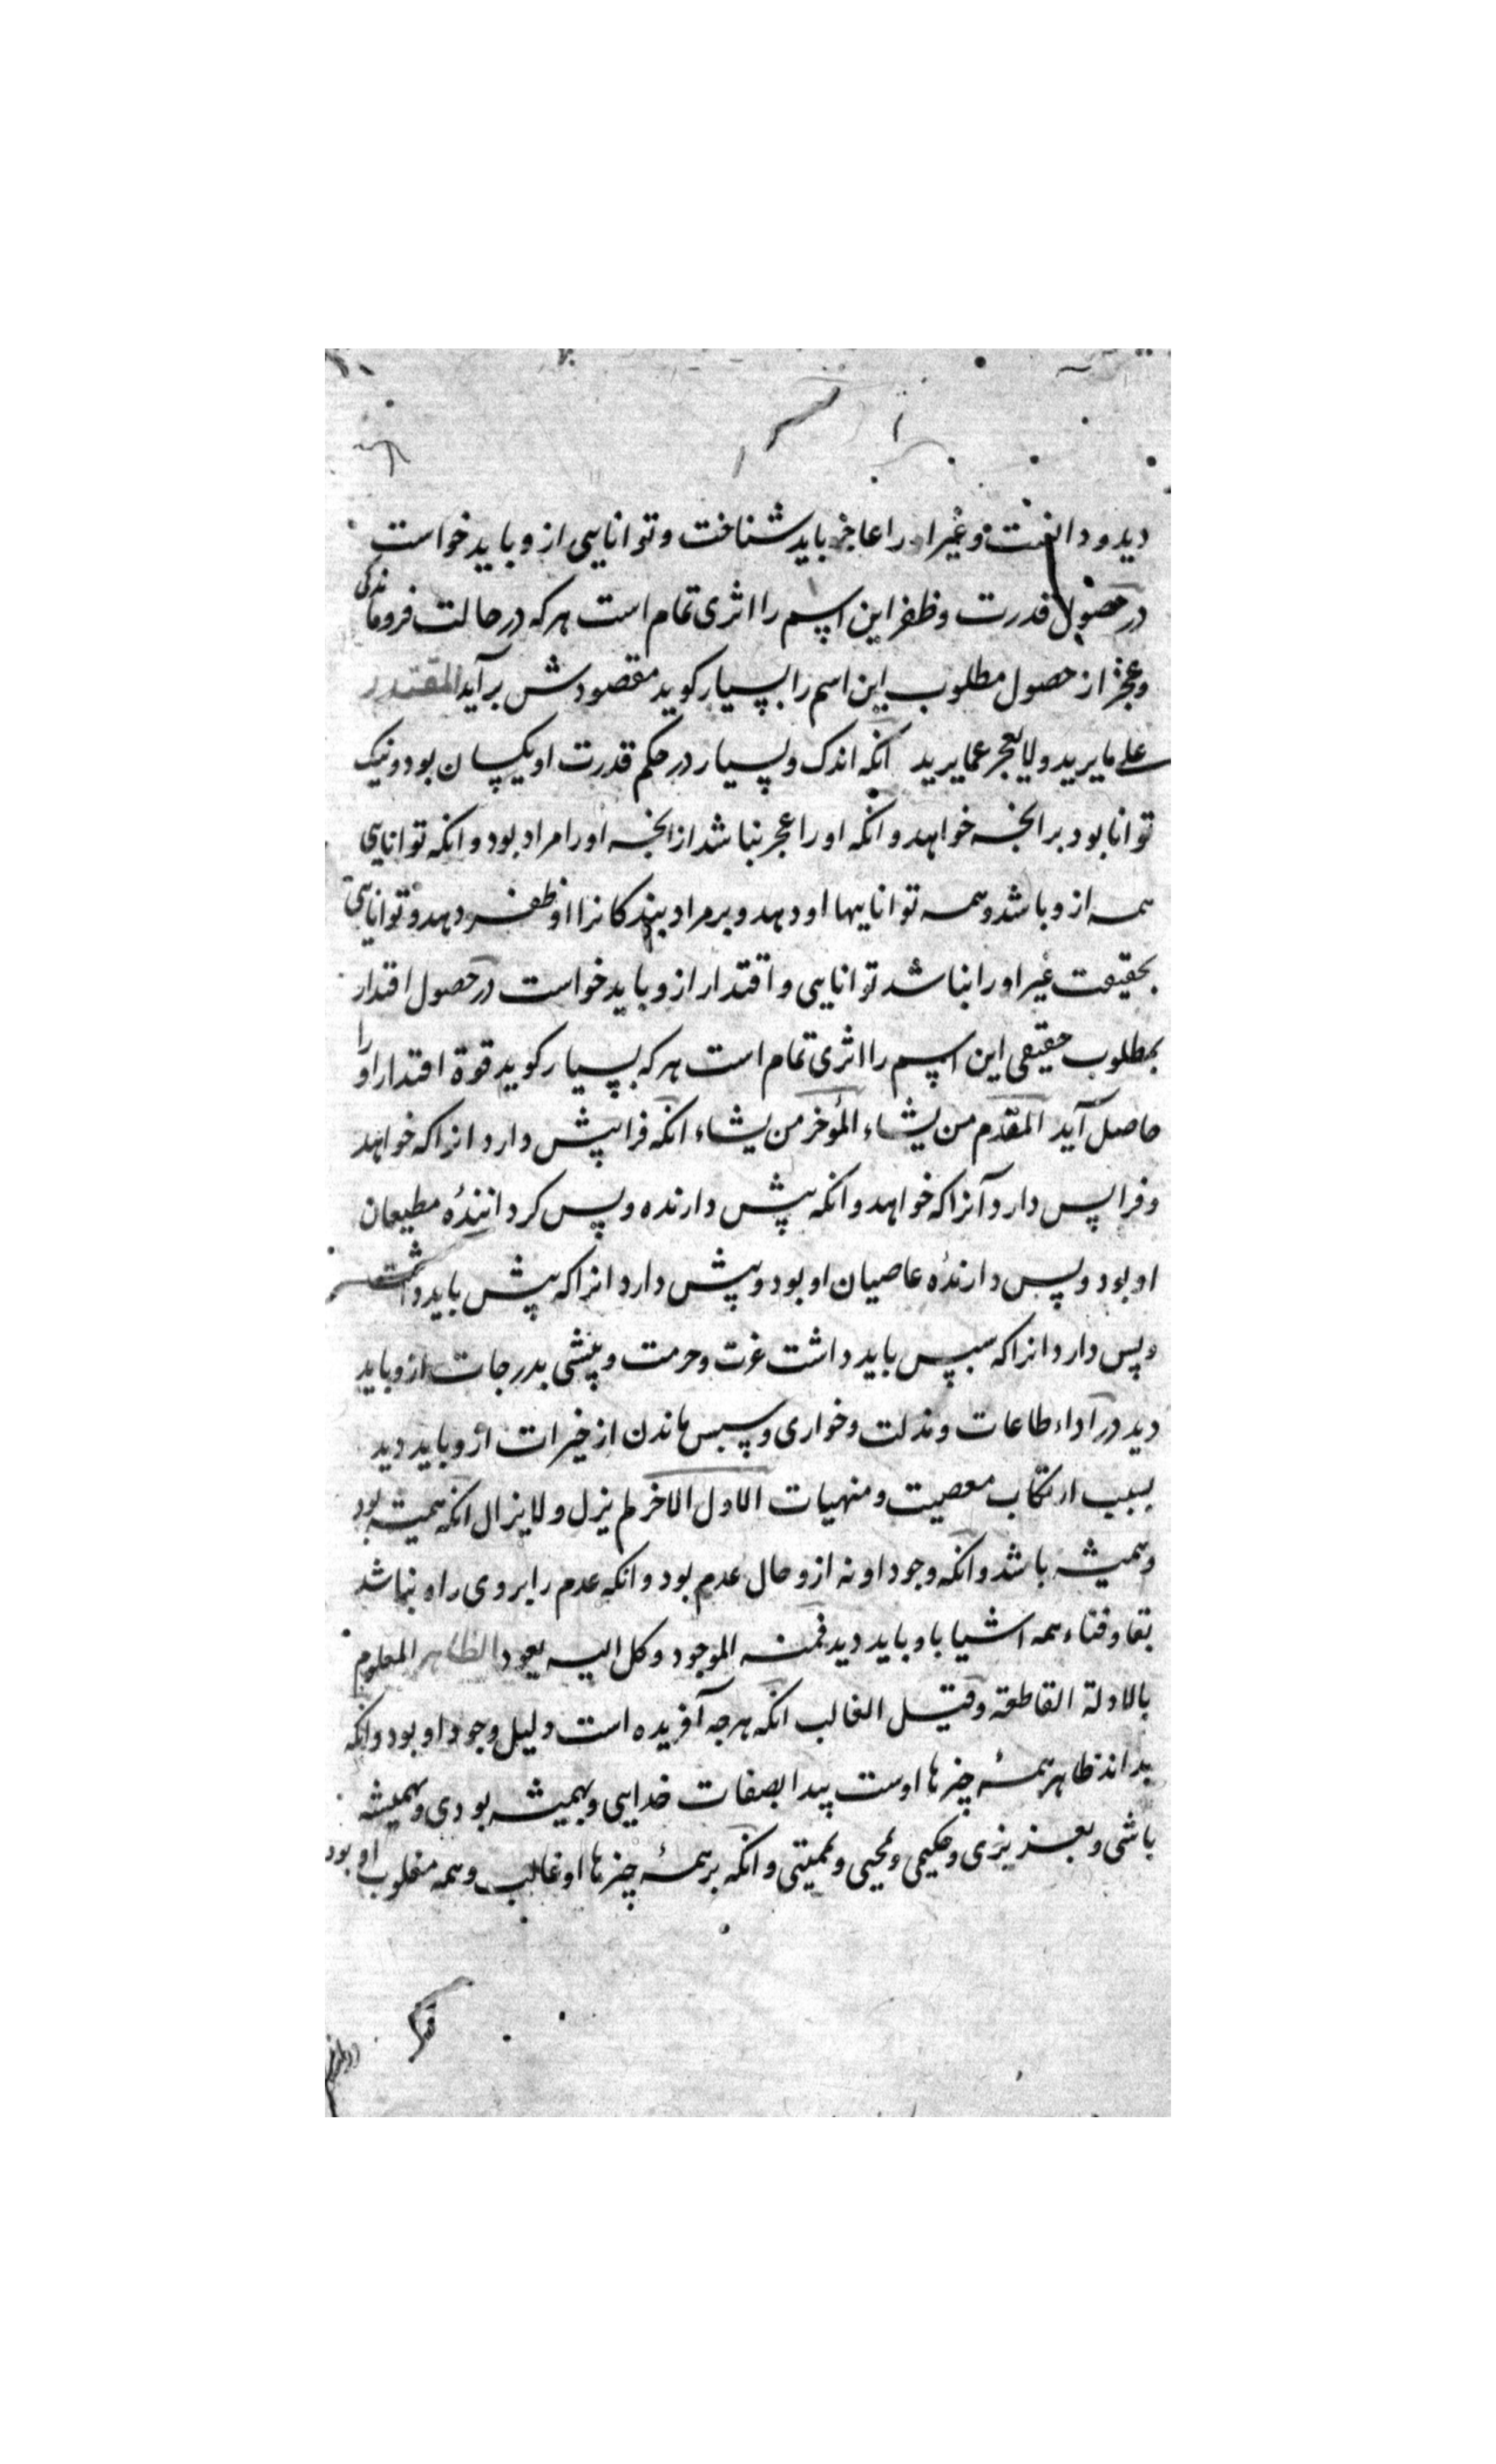 دید و دانست و غیر او را عاجز باید شناخت و توانایی ازو باید خواست
در حصول قدرت و ظفر این اسم را اثری تمام است هر که در حالت فروماندکی
و عجز از حصول مطلوب این اسم را بسیار کوید مقصودش برآید المقتدر
علی ما یرید ولا یعجز عما یرید آنکه اندک و بسیار در حکم قدرت او یکسان بود و نیک
توانا بود بر انچه خواهد و آنکه او را عجز نباشد از انچه او را مراد بود و انکه توانایی
همه ازو باشد و همه تواناییها او دهد و بر مراد بندکانرا او ظفر دهد و توانایی
بحقیقت غیر او را نباشد توانایی و اقتدار ازو باید خواست در حصول اقتدار
بمطلوب حقیقی این اسم را اثری تمام است هر که بسیار کوید قوة اقتدار او را
حاصل آید المقدم من یشاء المؤخر من یشاء انکه فرا پیش دارد انرا که خواهد
و فرا پس دارد آنرا که خواهد و انکه پیش دارنده و پس کرداننده مطیعان
او بود و پس دارندهٔ عاصیان او بود و پیش دارد انرا که پیش باید داشت
و پس دارد انرا که سپس باید داشت عزت و حرمت و پیشی بدرجات ازو باید
دید در آداء طاعات و مذلت و خواری و سپس ماندن از خیرات ازو باید دید
بسبب ارتکاب معصیت و منهیات الاول الاخر لم یزل و لا یزال انکه همیشه بود
و همیشه باشد و انکه وجود او نه ازو حال عدم بود و انکه عدم را بر وی راه نباشد
بقا و فناء همه اشیا باو باید دید فمنه الموجود و کل الیه یعود الظاهر المعلوم
بالادلة القاطعة و قیل الغالب انکه هرچه آفریده است دلیل وجود او بود و انکه
بداند ظاهر همهٔ چیزها اوست پیدا بصفات خدایی و بهمیشه بودی و همیشه
باشی و بعزیزی و حکیمی و محیی و ممیتی و انکه بر همهٔ چیزها او غالب و همه مغلوب او بود